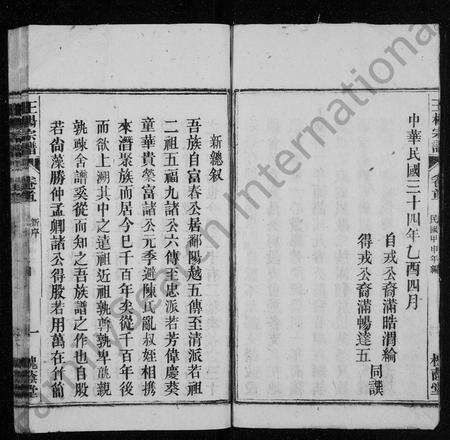 王楊宗譜
卷首
民國甲申年編
槐蔭堂
中華民國三十四年乙酉四月
自戎公裔滿晧渭綸
得戎公裔滿暢達五
同謹
新總叙
吾族自富春公居鄱陽越五傳至清派若祖
二祖五福九諸公六傳至忠派若芳偉慶葵
童華貴榮富諸公元季遇陳氏亂叔姪相携
來潛聚族而居今已千百年矣從千百年後
而欲上溯其中之遠祖近祖孰尊孰卑孰親
孰疎舍譜奚從而知之吾族譜之作也自殷
若尙藻勝仲孟卿諸公得殷若用萬在竹前
王楊宗譜
卷首
新序
一
槐蔭堂
Family Search International